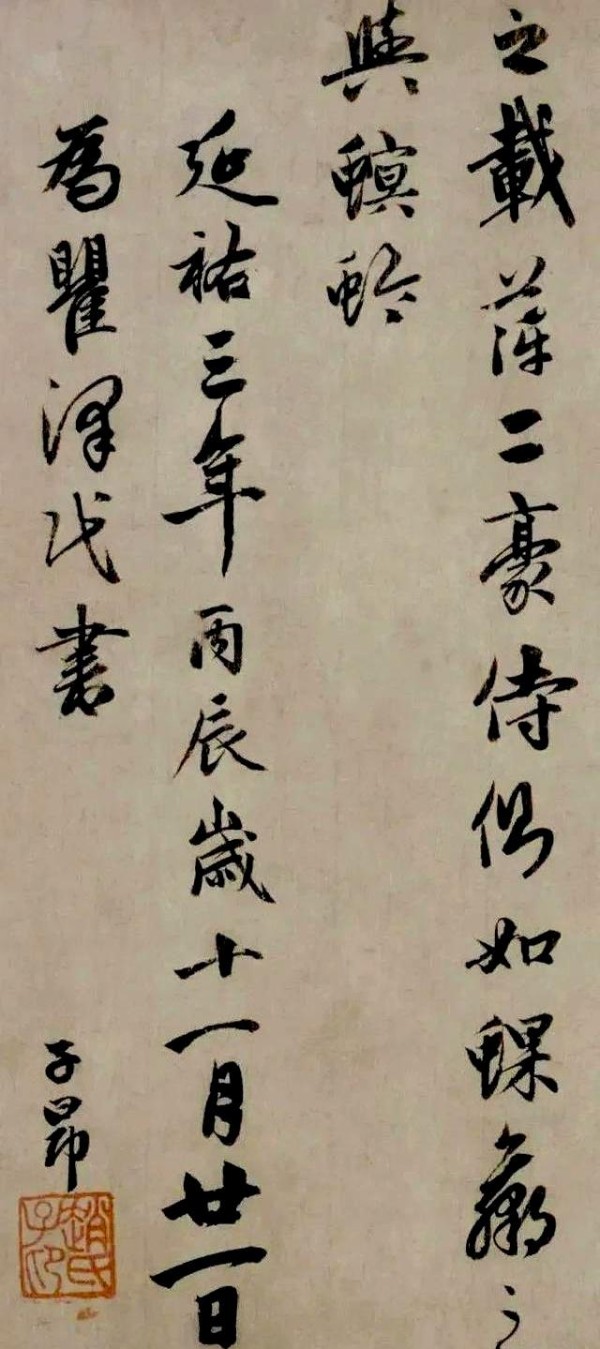 之載萍二豪侍側如蜾蠃之
與螟蛉
延祐三年丙辰歲十一月廿一日
為瞿澤民書
子昂
趙氏子昂